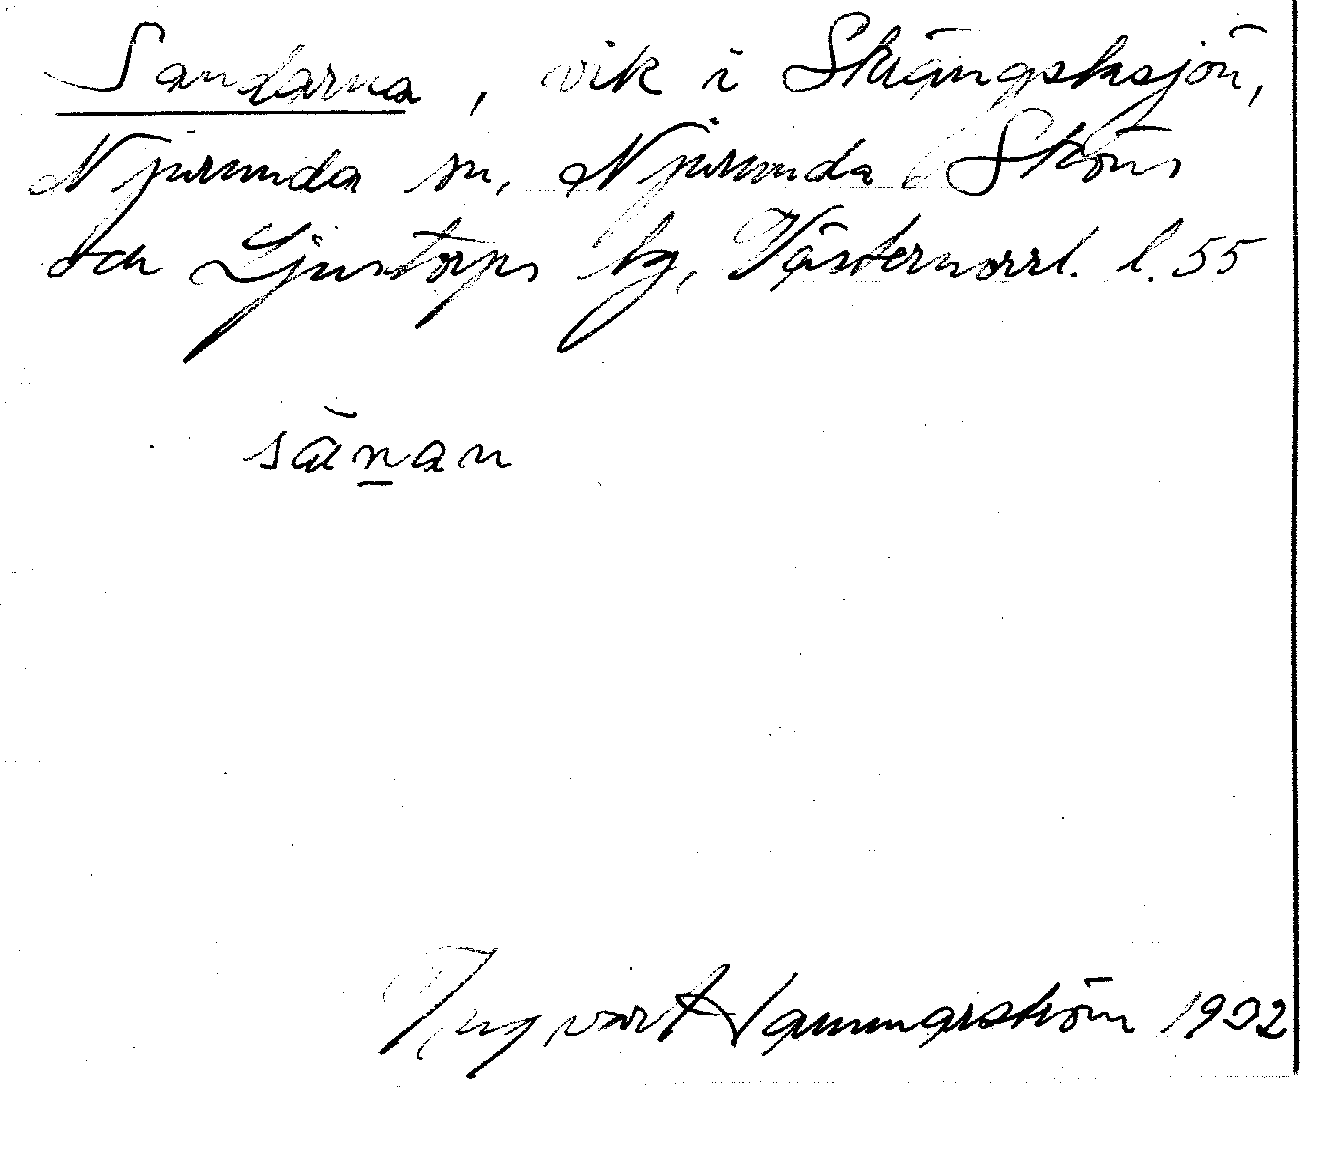 Sandarna, vik i Skrängstasjön,
Njurunda sn, Njurunda Sköns
och Ljustorps tg, Västernorrl. l. 55
sänan
Ingvart Hammarström 1932